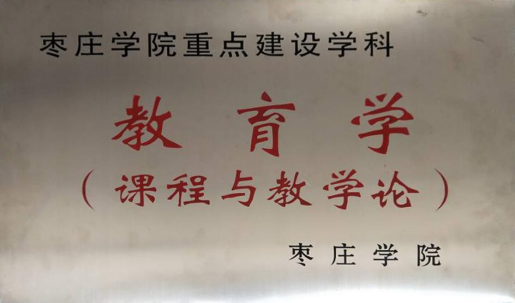 枣庄学院重点建设学科
教育学
（课程与教学论）
枣庄学院